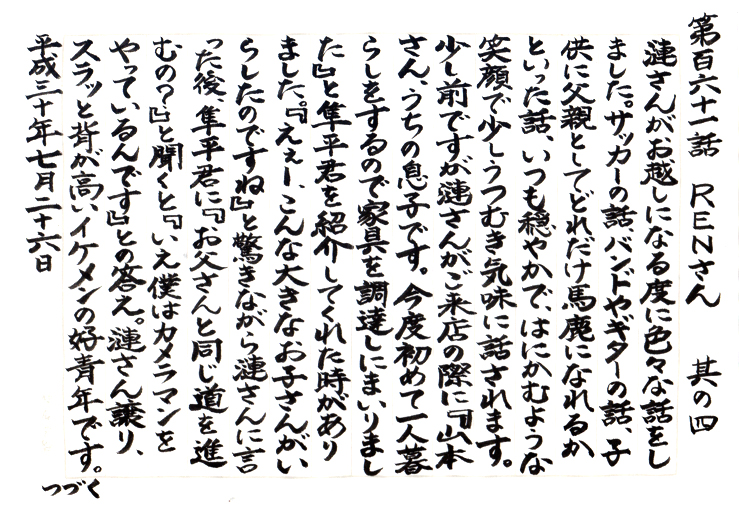 第百六十一話 RENさん 其の四
漣さんがお越しになる度に色々な話をし
ました。サッカーの話、バンドやギターの話、子
供に父親としてどれだけ馬鹿になれるか
といった話、いつも穏やかで、はにかむような
笑顔で少しうつむき気味に話されます。
少し前ですが漣さんがご来店の際に『山本
さん、うちの息子です。今度初めて一人暮
らしをするので家具を調達しにまいりまし
た』と隼平君を紹介してくれた時があり
ました。『えぇー、こんな大きなお子さんがい
らしたのですね』と驚きながら漣さんに言
った後、隼平君に『お父さんと同じ道を進
むの?』と聞くと『いえ僕はカメラマンを
やっているんです』との答え。漣さん譲り、
スラッと背が高いイケメンの好青年です。
つづく
平成三十年七月二十六日